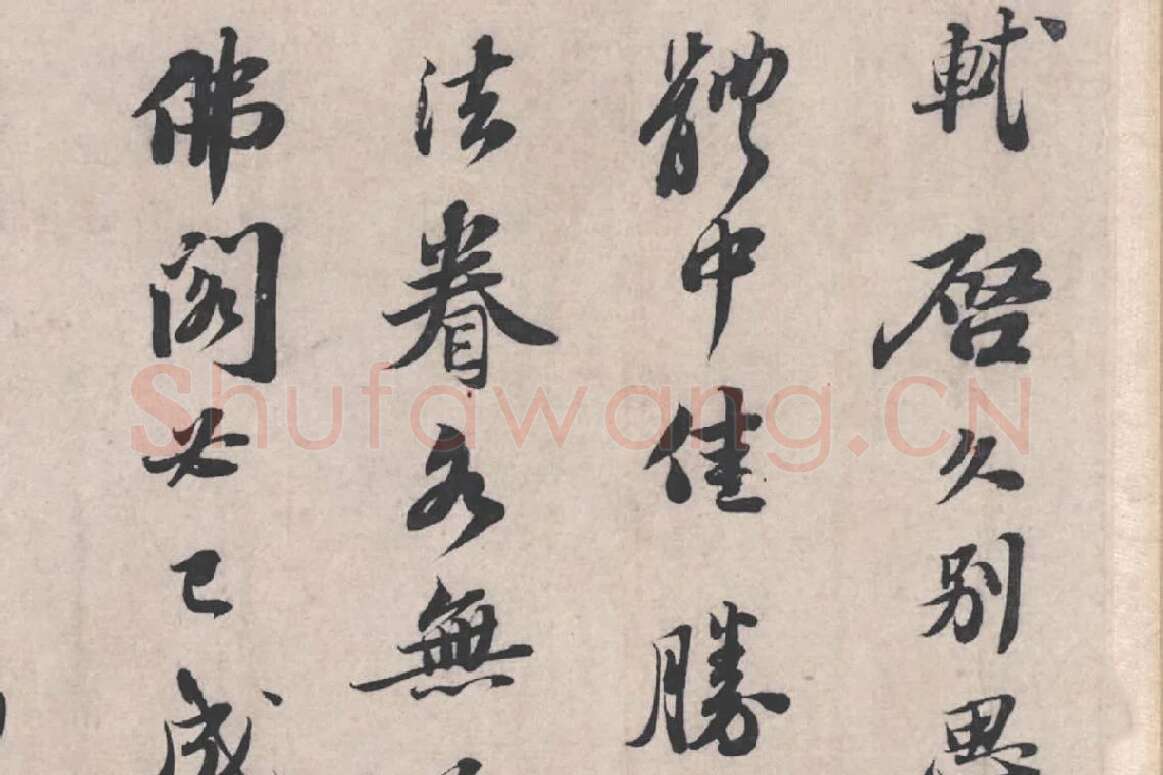 軾啓久別思
體中佳勝
法眷各無
佛閣必已成
Shufawang.CN